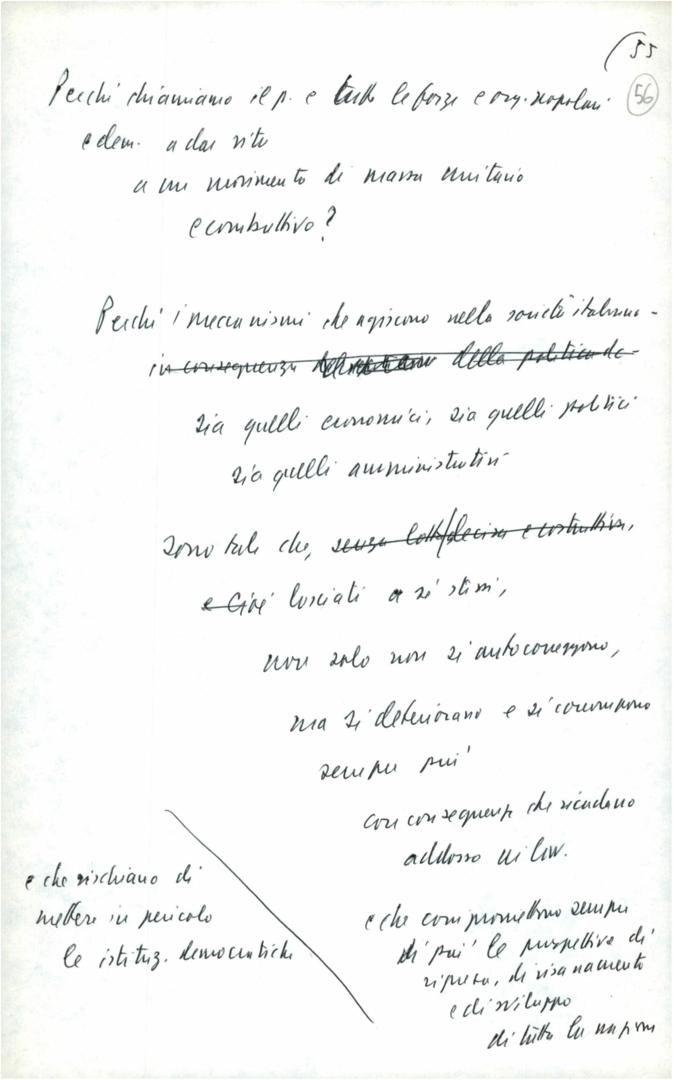 55
56
Perché chiamiamo il p. e tutte le forze e org. popolari
e dem. a dar vita
a un movimento di massa unitario
e combattivo?
Perché i meccanismi che agiscono nella società italiana -
in conseguenza della politica de-
sia quelli economici, sia quelli politici
sia quelli amministrativi
sono tali che, senza lotta decisa e costruttiva,
e cioè lasciati a sé stessi,
non solo non si autocorreggono,
ma si deteriorano e si corrompono
sempre più
con conseguenze che ricadano
addosso ai lav.
e che rischiano di
mettere in pericolo
le istituz. democratiche
e che compromettono sempre
di più le prospettive di
ripresa, di risanamento
e di sviluppo
di tutta la nazione